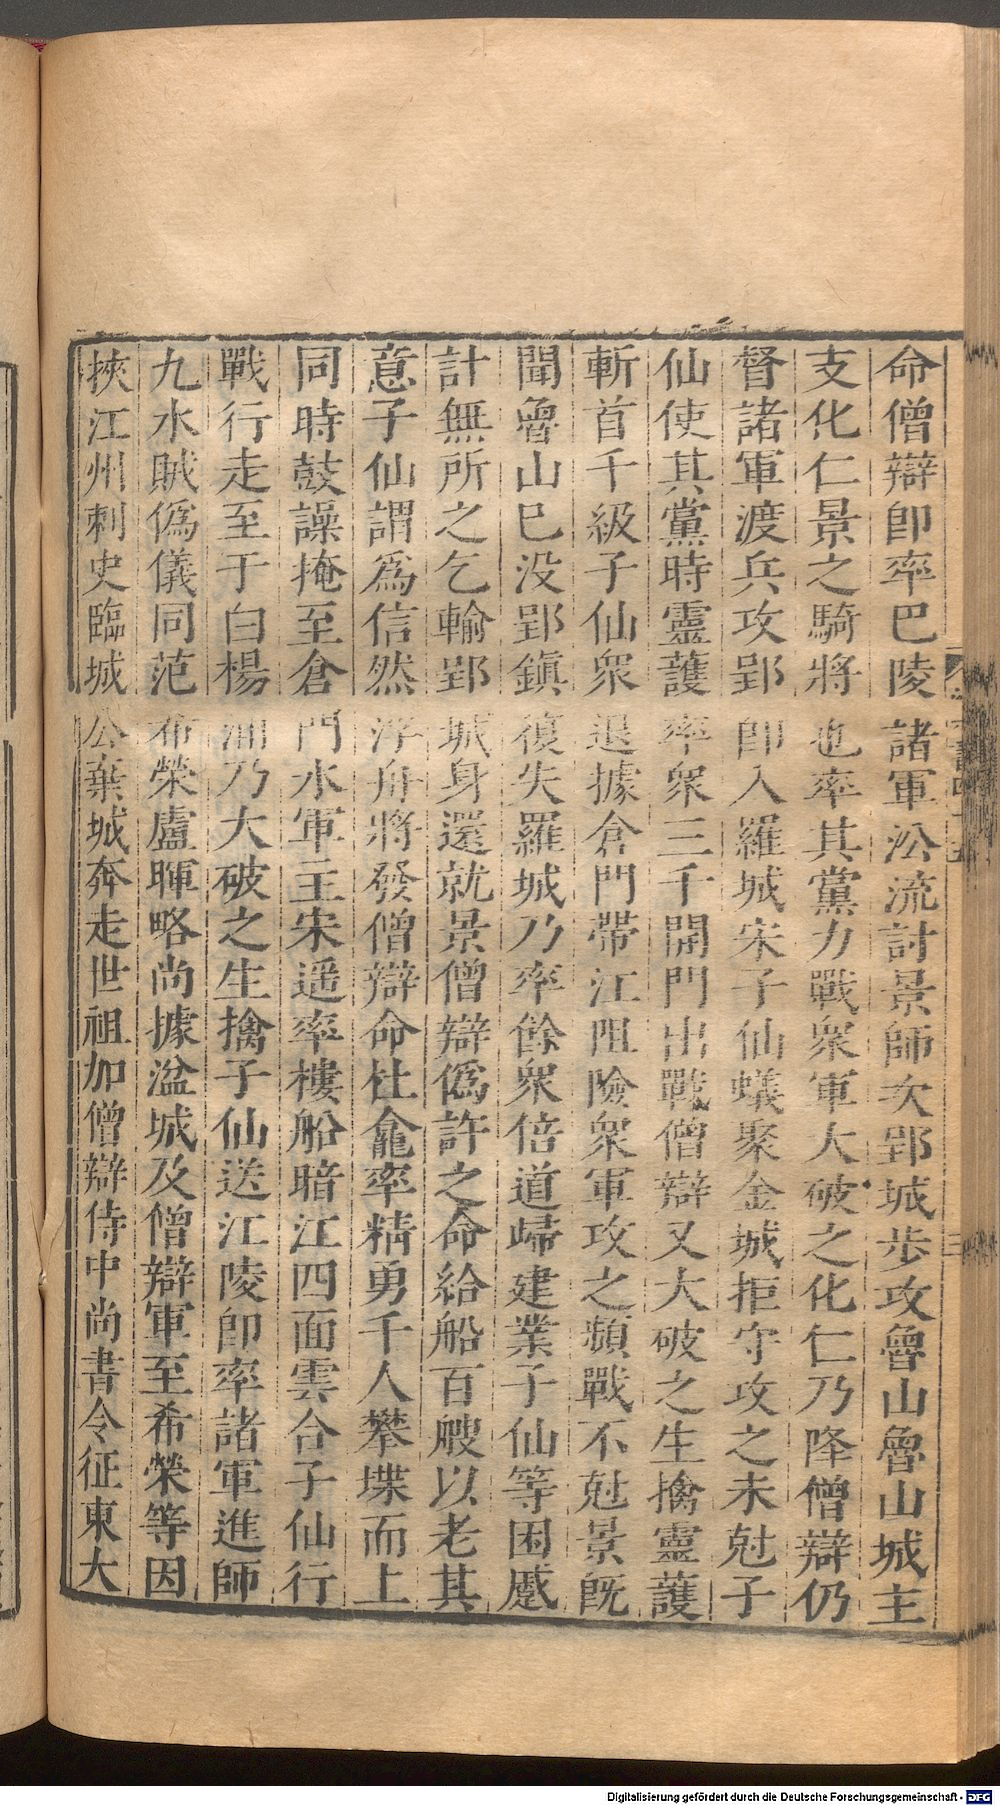 命僧辯即率巴陵諸軍沿流討景師次郢城步攻魯山魯山城主
支化仁景之騎將也率其黨力戰衆軍大破之化仁乃降僧辯仍
督諸軍渡兵攻郢即入羅城宋子仙蟻聚金城拒守攻之未尅子
仙使其黨時靈護率衆三千開門出戰僧辯又大破之生擒靈護
斬首千級子仙衆退據倉門帶江阻險衆軍攻之頻戰不尅景既
聞魯山已没郢鎮復失羅城乃率餘衆倍道歸建業子仙等困蹙
計無所之乞輸郢城身還就景僧辯僞許之命給船百艘以老其
意子仙謂爲信然浮舟將發僧辯命杜龕率精勇千人攀堞而上
同時鼓譟掩至倉門水軍主宋遥率樓船暗江四面雲合子仙行
戰行走至于白楊浦乃大破之生擒子仙送江陵即率諸軍進師
九水賊僞儀同范希榮盧暉略尚據湓城及僧辯軍至希榮等因
挾江州刺史臨城公棄城奔走世祖加僧辯侍中尚書令征東大
三
Digitalisierung gefördert durch die Deutsche Forschungsgemeinschaft - DFG